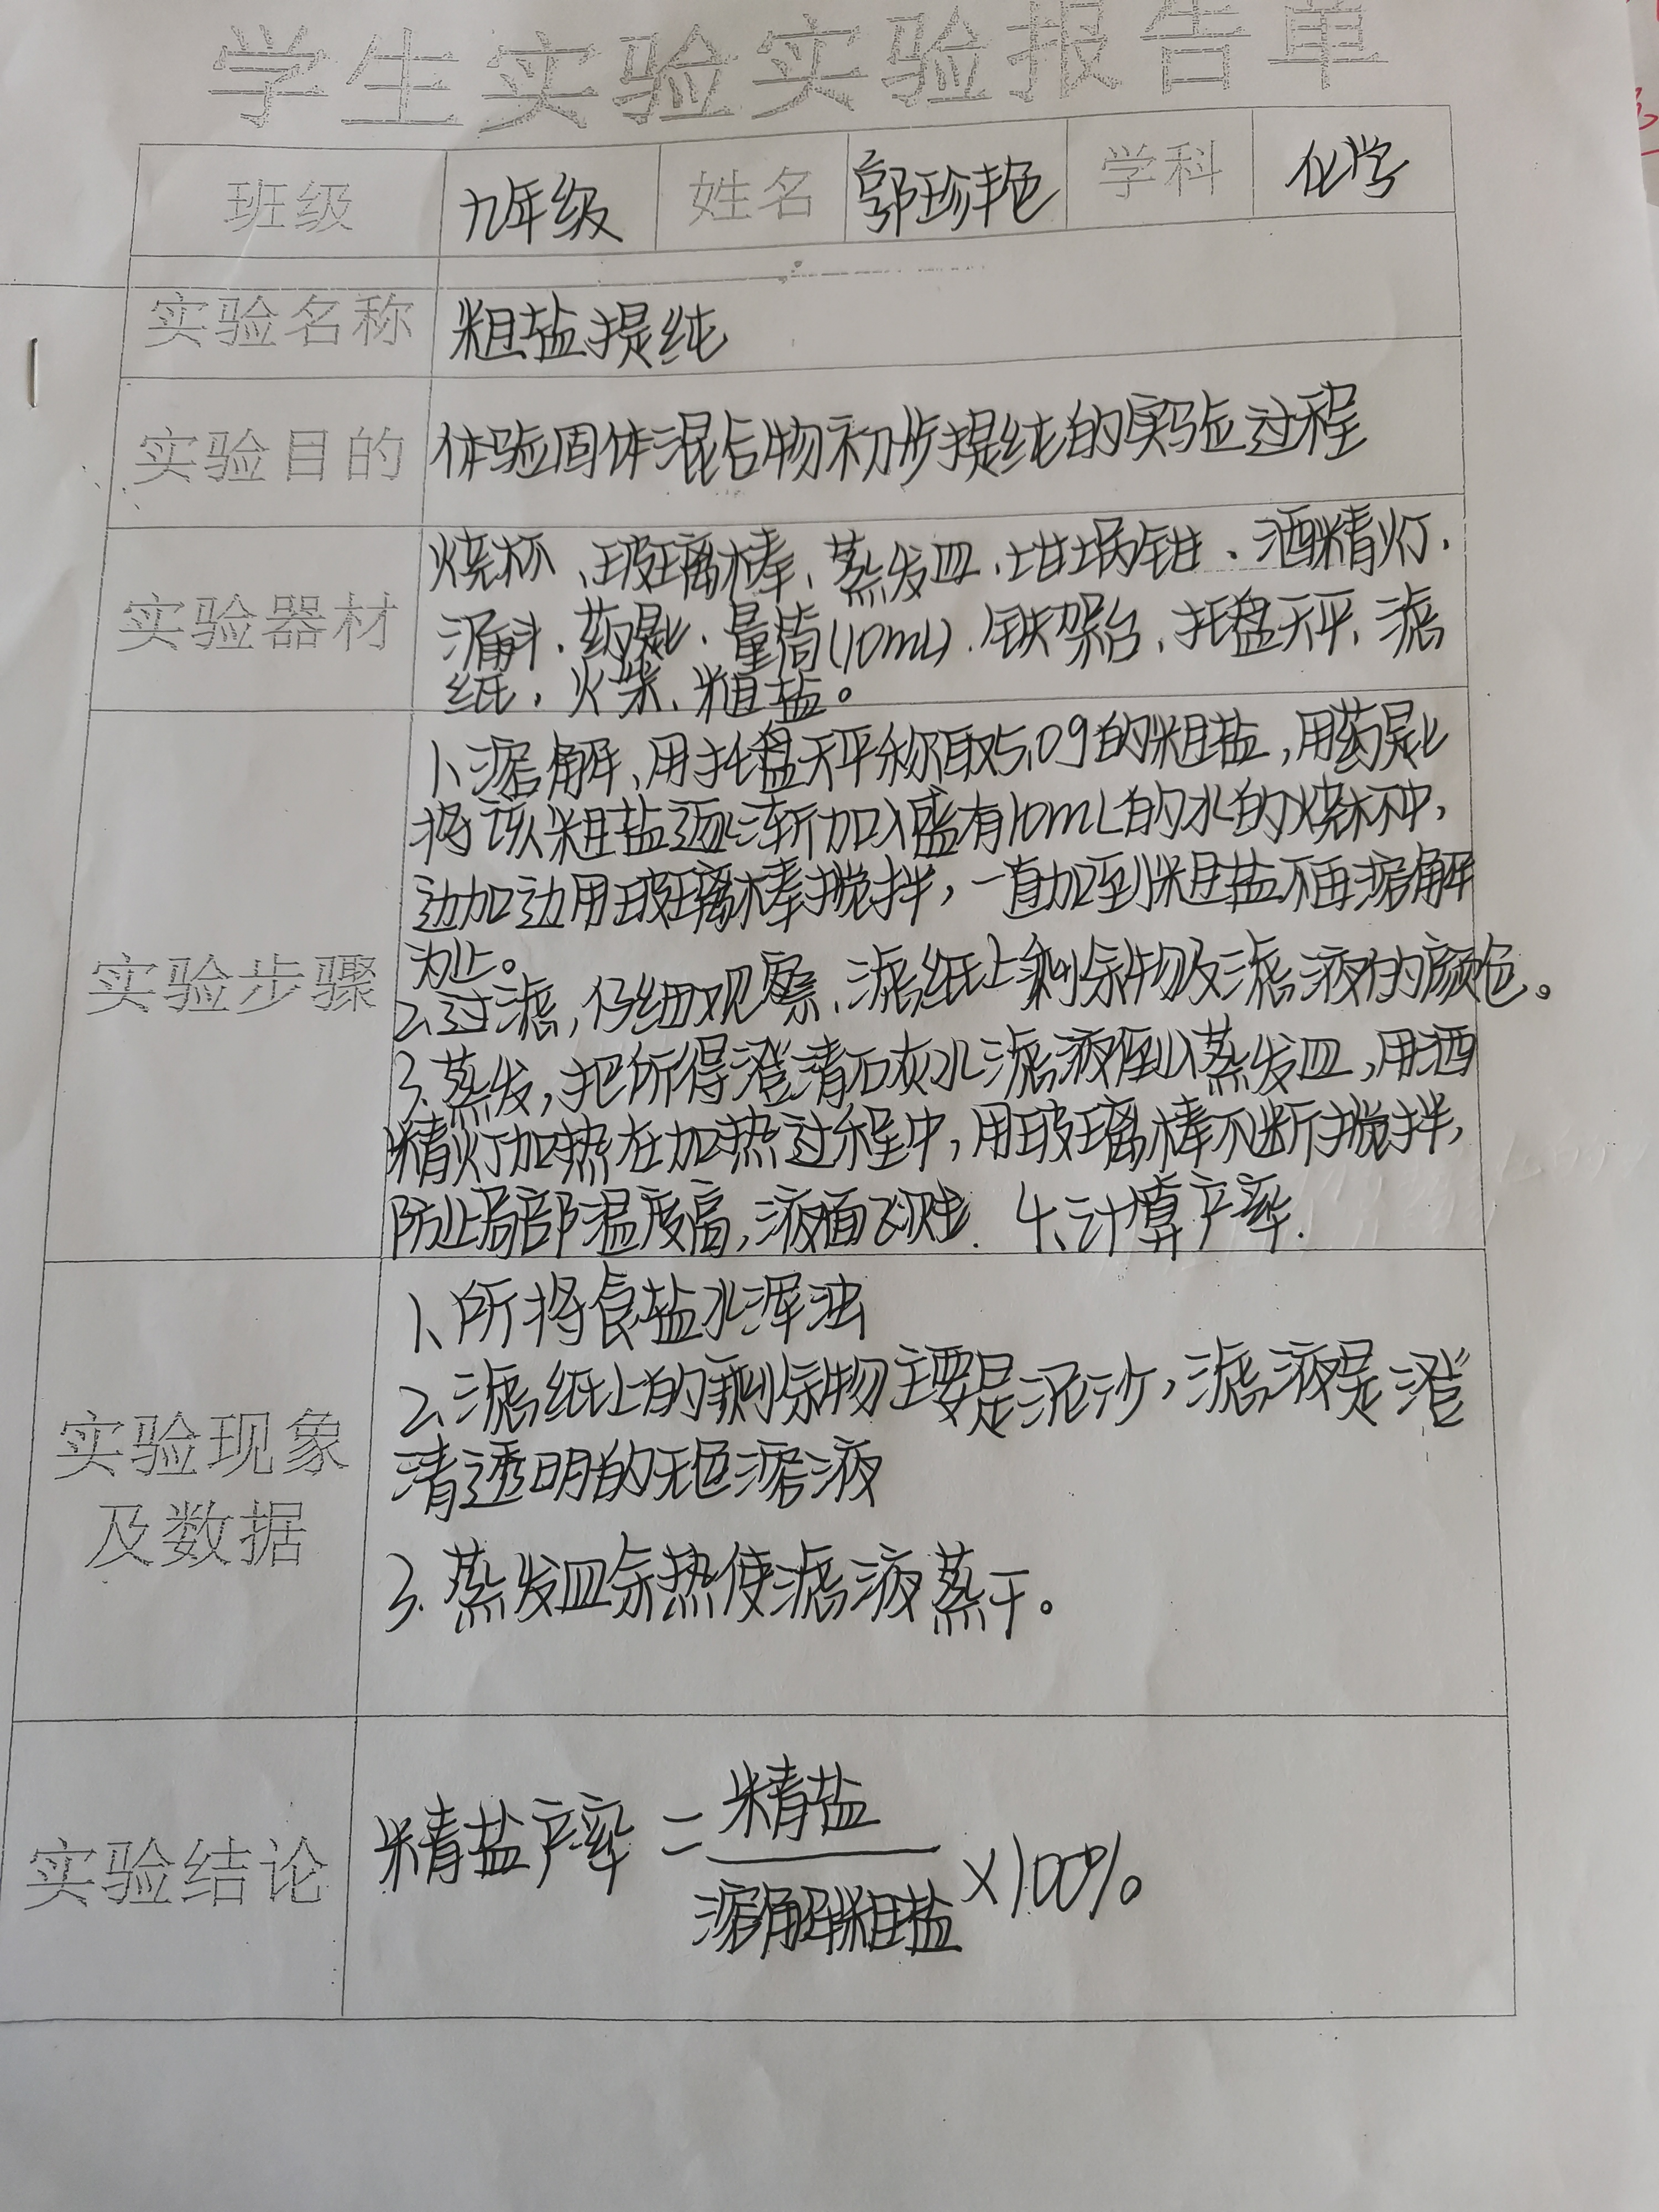 学生实验实验报告单
班级 九年级 姓名 郭珍艳 学科 化学
实验名称 粗盐提纯
实验目的 体验固体混合物初步提纯的实验过程
实验器材 烧杯、玻璃棒、蒸发皿、坩埚钳、酒精灯、
漏斗、药匙、量筒(10mL)、铁架台、托盘天平、滤
纸、火柴、粗盐。
实验步骤 1、溶解、用托盘天平称取5.0g的粗盐,用药匙
将该粗盐逐渐加入盛有10mL的水的烧杯中,
边加边用玻璃棒搅拌,一直加到粗盐不再溶解
为止。
2、过滤,仔细观察、滤纸上剩余物及滤液的颜色。
3、蒸发,把所得澄清石灰水滤液倒入蒸发皿,用酒
精灯加热在加热过程中,用玻璃棒不断搅拌,
防止局部温度高,液面飞溅. 4、计算产率.
实验现象及数据 1、所将食盐水浑浊
2、滤纸上的剩余物主要是泥沙,滤液是澄
清透明的无色溶液
3、蒸发皿余热使滤液蒸干。
实验结论 精盐产率=精盐/溶解粗盐×100%。